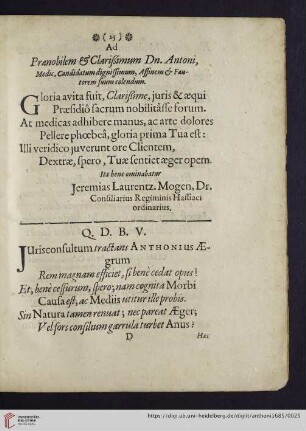 (25)
Ad
Prænobilem & Clarissimum Dn. Antoni,
Medic. Candidatum dignissimum, Affinem & Fau-
torem suum colendum.
Gloria avita fuit, Clarissime, juris & æqui
Præsidiô sacrum nobilitâsse forum.
At medicas adhibere manus, ac arte dolores
Pellere phœbeâ, gloria prima Tua est:
Illi veridico juverunt ore Clientem,
Dextræ, spero, Tuæ sentiet æger opem.
Ita bene ominabatur
Jeremias Laurentz. Mogen, Dr.
Consiliarius Regiminis Hassiaci
ordinarius.
Q. D. B. V.
JUrisconsultum tractans ANTHONIUS Æ-
grum
Rem magnam efficiet, si benè cedat opus!
Et, benè cessurum, spero; nam cognita Morbi
Causa est, ac Mediis utitur ille probis.
Sin Natura tamen renuat; nec pareat Æger;
Vel fors consilium garrula turbet Anus?
D
Hæc
http://digi.ub.uni-heidelberg.de/diglit/anthoni1685/0025